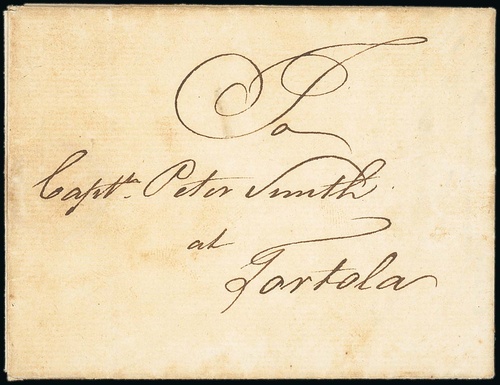 To
Captn. Peter Smith
at
Tortola